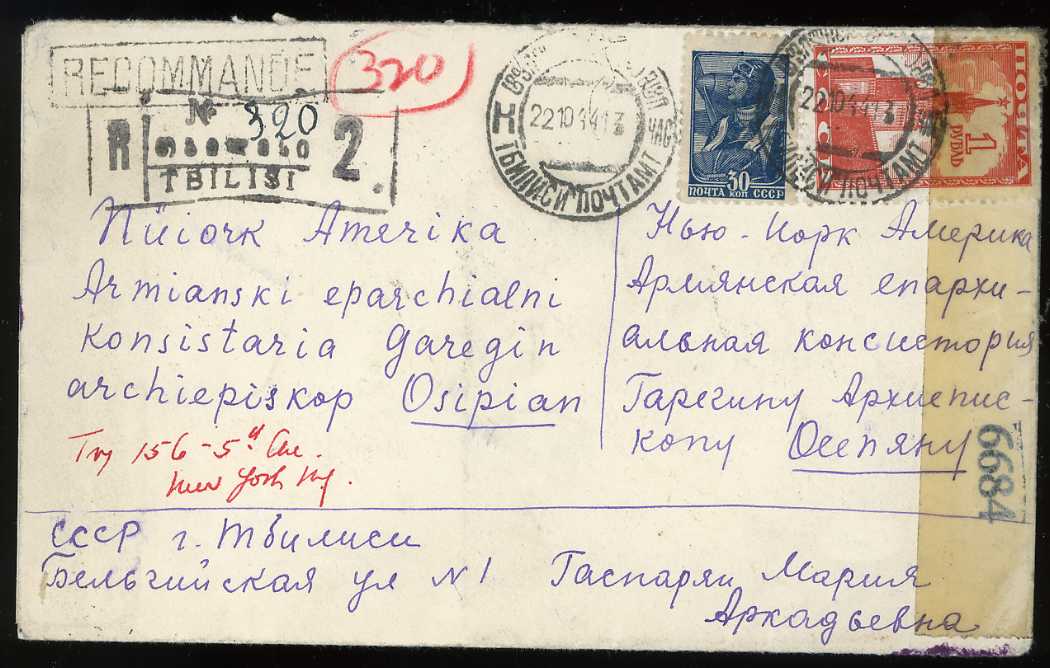 RECOMMANDÉ
320
№ 320
R 2
TBILISI
22 10 44 13
ТБИЛИСИ ПОЧТАМТ
ПОЧТА 30 КОП СССР
22 10 44 13
ПОЧТАМТ
ПОЧТА
1
РУБЛЬ
Niüiork Amerika
Armianski eparchialni
Konsistaria Garegin
archiepiskop Osipian
Try 156 - 5th Ave.
New York NY.
Нью-Иорк Америка
Армянская епархи-
альная консистория
Гарегину Архиепис-
копу Осепяну
6684
СССР г. Тбилиси
Бельгийская ул N1 Гаспарян Мария
Аркадьевна